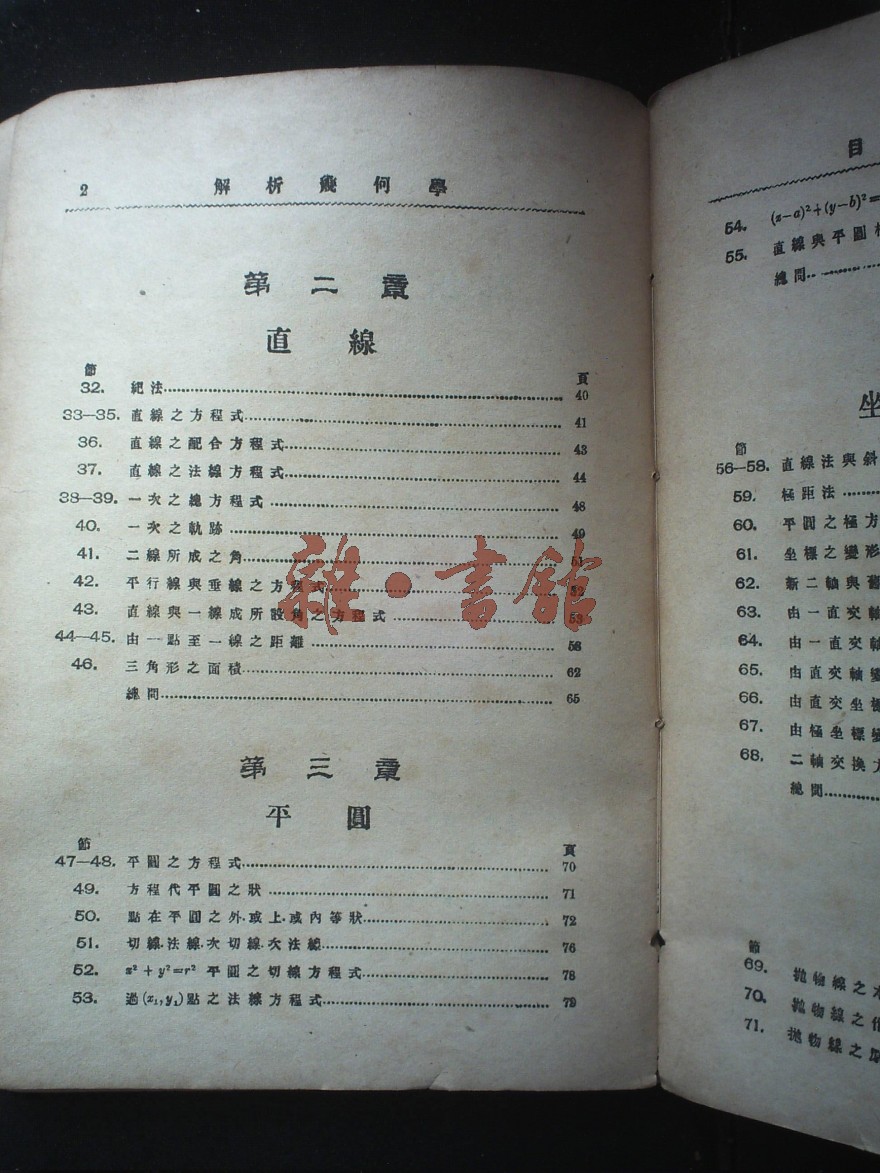 2 解析幾何學
第二章
直線
節 頁
32. 紀法 40
33—35. 直線之方程式 41
36. 直線之配合方程式 43
37. 直線之法線方程式 44
38—39. 一次之總方程式 48
40. 一次之軌跡 49
41. 二線所成之角 51
42. 平行線與垂線之方程式 52
43. 直線與一線成所設角之方程式 53
44—45. 由一點至一線之距離 58
46. 三角形之面積 62
總問 65
雜·書館
第三章
平圓
節 頁
47—48. 平圓之方程式 70
49. 方程代平圓之狀 71
50. 點在平圓之外·或上·或內等狀 72
51. 切線·法線·次切線·次法線 76
52. x²+y²=r² 平圓之切線方程式 78
53. 過(x₁,y₁)點之法線方程式 79
目
54. (x—a)²+(y—b)²=
55. 直線與平圓
總問
坐
節
56—58. 直線法與斜
59. 極距法
60. 平圓之極方
61. 坐標之變形
62. 新二軸與舊
63. 由一直交軸
64. 由一直交軸
65. 由直交軸變
66. 由直交坐標
67. 由極坐標變
68. 二軸交換方
總問
節
69. 拋物線之
70. 拋物線之作
71. 拋物線之